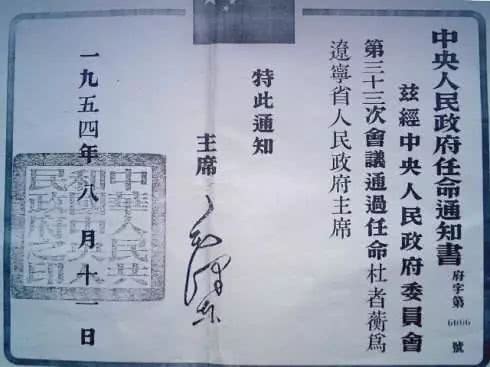 中央人民政府任命通知書
府字第6066號
茲經中央人民政府委員會
第三十三次會議通過任命杜者蘅爲
遼寧省人民政府主席
特此通知
主席
毛澤东
一九五四年八月十一日
中華人民共
和國中央人
民政府之印